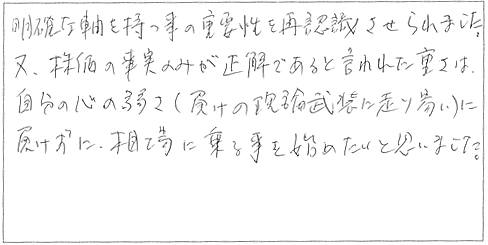 明確な軸を持つ事の重要性を再認識させられました。
又、株価の事実のみが正解であると言われた重さは、
自分の心の弱さ(負けの理論武装に走り易い)に
負けずに、相場に乗る事を始めたいと思いました。